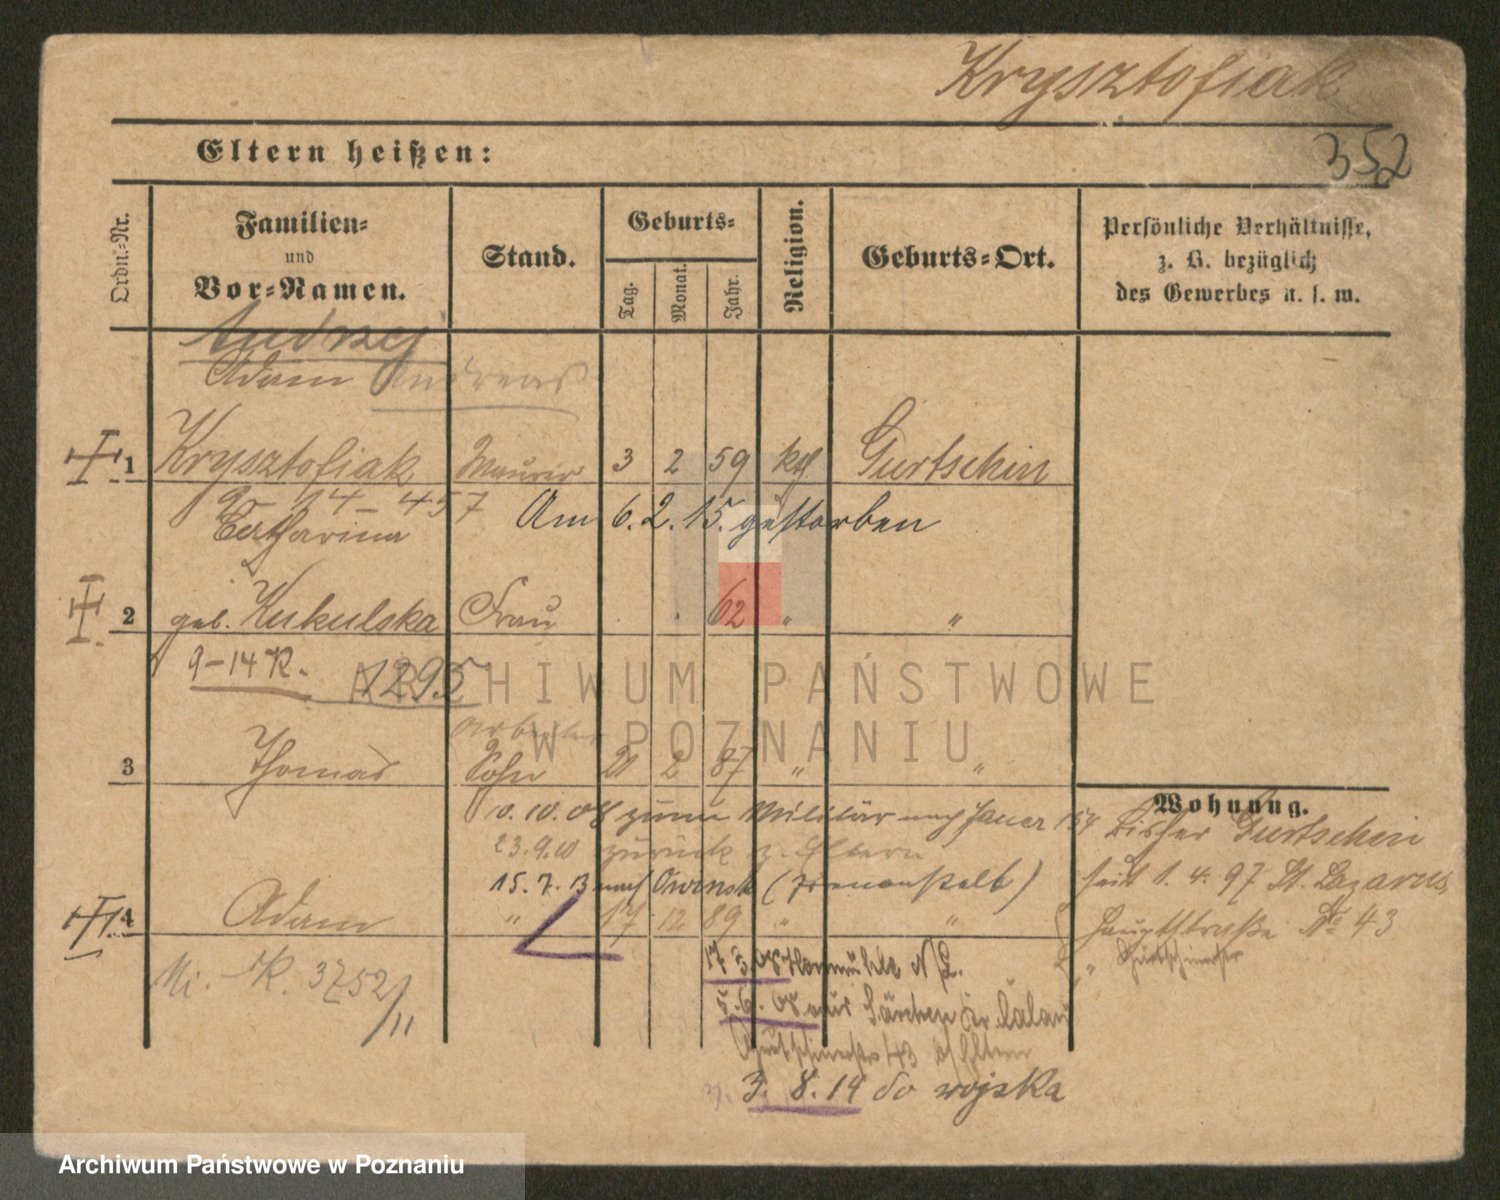 Krysztofiak
352
Eltern heißen:
Ordn.-Nr.
Familien-
und
Vor-Namen.
Stand.
Geburts-
Tag.
Monat.
Jahr.
Religion.
Geburts-Ort.
Persönliche Verhältnisse,
z. B. bezüglich
des Gewerbes u. s. w.
Andrzej
Adam Andreas
1 Krysztofiak Maurer 3 2 59 kth Gurtschin
9-14-457 Am 6.2.15. gestorben
Catharina
2 geb. Kukulska Frau 62 " "
9-14 R. 1295
Arbeiter
3 Thomas Sohn 21 2 87 " "
Wohnung.
10.08 zum Militär nach Jauer 154
bisher Gurtschin
23.9.10 zurück z. Eltern
15.7.13 nach Owinsk (Irrenanstalt)
seit 1. 4. 97 St. Lazarus
4 Adam " 17 12 89 " "
Hauptstraße No 43
17 3.08 N/L.
Mi. R. 3752/11
5.6.08 aus Särchen Kr. Calau
43 Eltern
3. 8.14 do wojska
ARCHIWUM PAŃSTWOWE
W POZNANIU
Archiwum Państwowe w Poznaniu